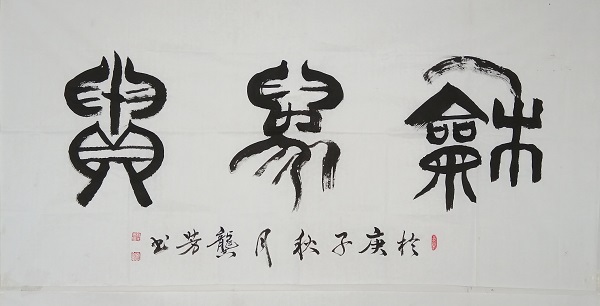 龢為貴
於庚子秋月龔芳书